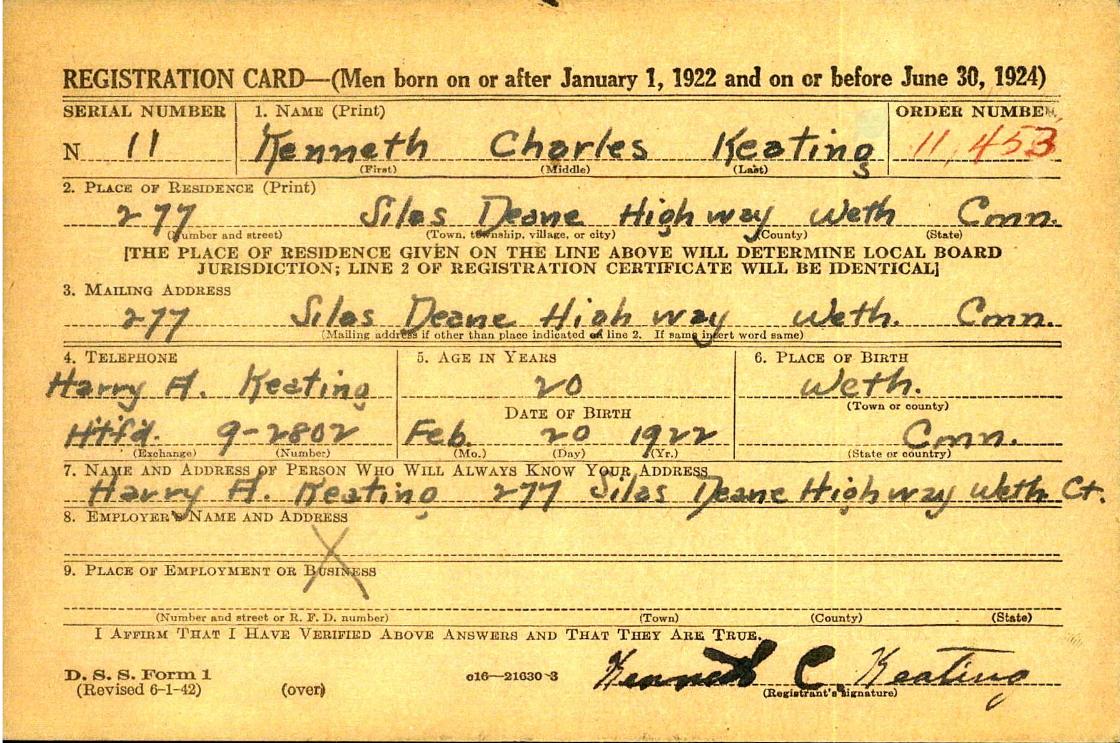 REGISTRATION CARD—(Men born on or after January 1, 1922 and on or before June 30, 1924)
SERIAL NUMBER 1. NAME (Print) ORDER NUMBER
N 11 Kenneth Charles Keating 11,453
(First) (Middle) (Last)
2. PLACE OF RESIDENCE (Print)
277 Silas Deane Highway Weth Conn.
(Number and street) (Town, township, village, or city) (County) (State)
[THE PLACE OF RESIDENCE GIVEN ON THE LINE ABOVE WILL DETERMINE LOCAL BOARD
JURISDICTION; LINE 2 OF REGISTRATION CERTIFICATE WILL BE IDENTICAL]
3. MAILING ADDRESS
277 Silas Deane Highway Weth. Conn.
(Mailing address if other than place indicated on line 2. If same insert word same)
4. TELEPHONE 5. AGE IN YEARS 6. PLACE OF BIRTH
Harry A. Keating 20 Weth.
(Town or county)
DATE OF BIRTH
Htfd. 9-2802 Feb. 20 1922 Conn.
(Exchange) (Number) (Mo.) (Day) (Yr.) (State or country)
7. NAME AND ADDRESS OF PERSON WHO WILL ALWAYS KNOW YOUR ADDRESS
Harry A. Keating 277 Silas Deane Highway Weth Ct.
8. EMPLOYER'S NAME AND ADDRESS
X
9. PLACE OF EMPLOYMENT OR BUSINESS
(Number and street or R. F. D. number) (Town) (County) (State)
I AFFIRM THAT I HAVE VERIFIED ABOVE ANSWERS AND THAT THEY ARE TRUE.
D. S. S. Form 1
(Revised 6-1-42) (over) o16—21630-3 Kenneth C. Keating
(Registrant's signature)